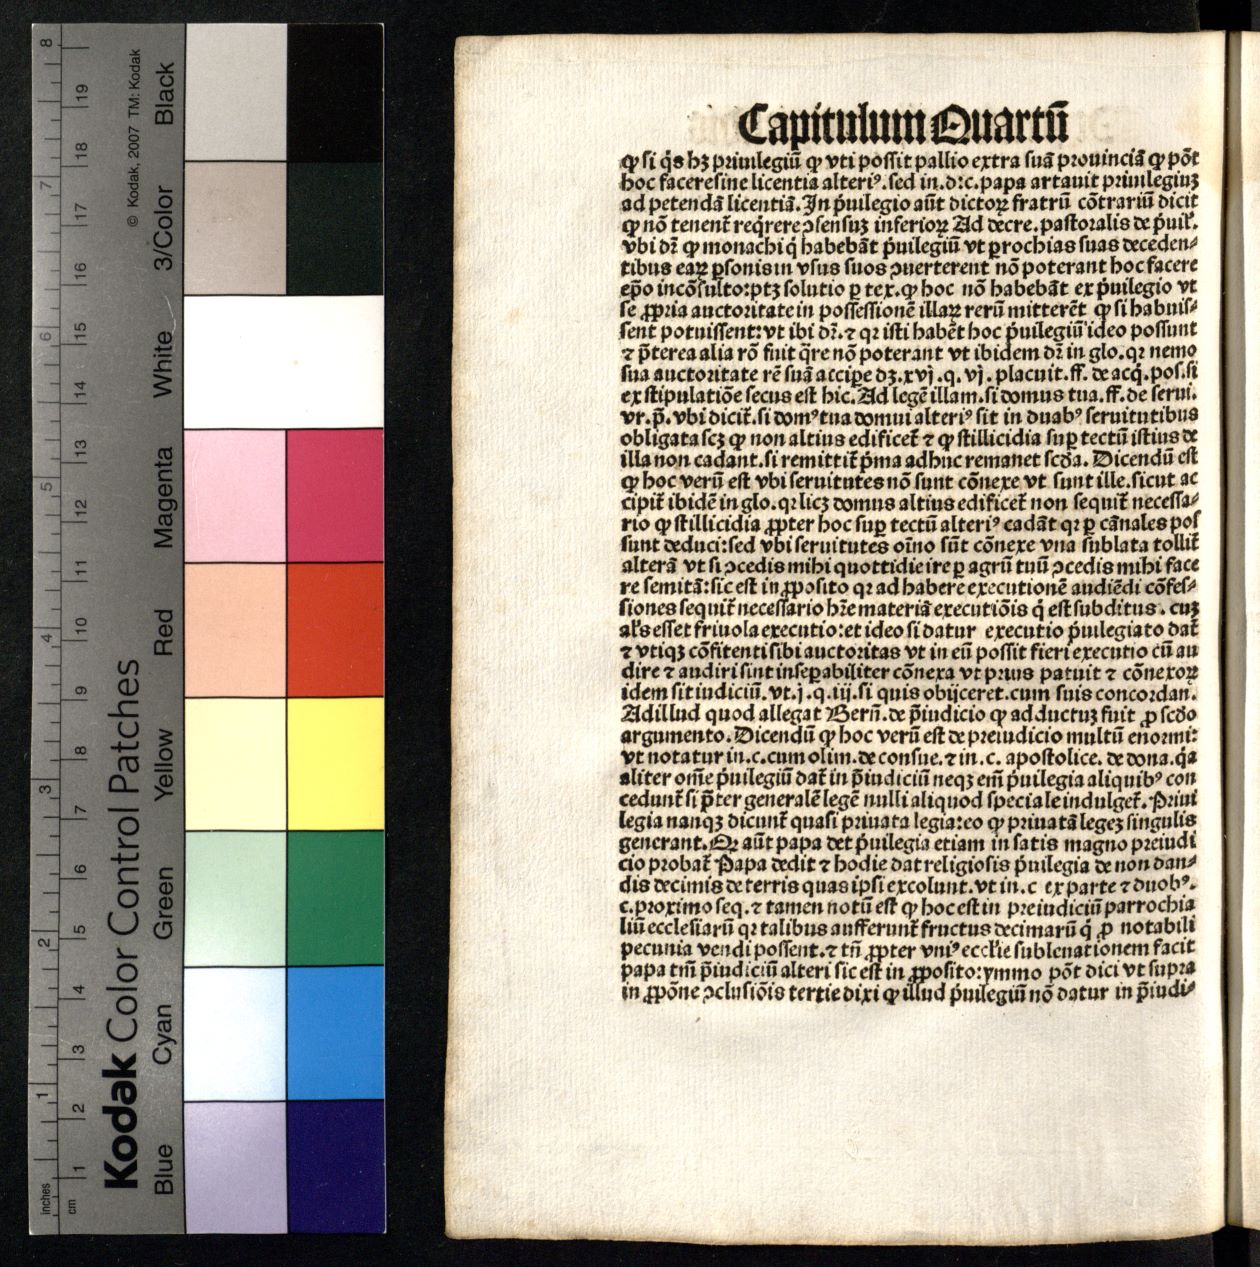 Capitulum Quartū
ꝙ si q̄s hꝫ priuilegiū ꝙ vti possit pallio extra suā prouinciā ꝙ pōt
hoc facere sine licentia alteriꝰ. sed in.d:c.papa artauit priuilegiuꝫ
ad petendā licentiā. In p̄uilegio aūt dictoꝝ fratrū cōtrariū dicit
ꝙ nō tenent̄ req̄rere ↄsensuꝫ inferioꝝ Ad decre. pastoralis de p̄uil̄.
vbi dr̄ ꝙ monachi q̄ habebāt p̄uilegiū vt ꝑrochias suas deceden⸗
tibus eaꝝ ꝑsonis in vsus suos ↄuerterent nō poterant hoc facere
ep̄o incōsulto:ptꝫ solutio ꝑ tex.ꝙ hoc nō habebāt ex p̄uilegio vt
se ꝓpria auctoritate in possessionē illaꝝ rerū mitterēt ꝙ si habuis⸗
sent potuissent:vt ibi dr̄.⁊ qꝛ isti habēt hoc p̄uilegiū ideo possunt
⁊ p̄terea alia rō fuit q̄re nō poterant vt ibidem dr̄ in glo.qꝛ nemo
sua auctoritate rē suā accipe dꝫ.xvj.q.vj.placuit.ff.de acq̄.pos.si
ex stipulatiōe secus est hic. Ad legē illam.si domus tua.ff.de serui.
vr.p̄.vbi dicit̄.si domꝰ tua domui alteriꝰ sit in duabꝰ seruitutibus
obligata scꝫ ꝙ non altius edificet̄ ⁊ ꝙ stillicidia suꝑ tectū istius de
illa non cadant.si remittit̄ p̄ma adhuc remanet scd̄a. Dicendū est
ꝙ hoc verū est vbi seruitutes nō sunt cōnexe vt sunt ille.sicut ac
cipit̄ ibidē in glo.qꝛ licꝫ domus altius edificet̄ non sequit̄ necessa⸗
rio ꝙ stillicidia ꝓpter hoc suꝑ tectū alteriꝰ cadāt qꝛ ꝑ cānales pos
sunt deduci:sed vbi seruitutes oīno sūt cōnexe vna sublata tollit̄
alterā vt si ↄcedis mihi quottidie ire ꝑ agrū tuū ↄcedis mihi face
re semitā:sic est in ꝓposito qꝛ ad habere executionē audiēdi cōfes⸗
siones sequit̄ necessario hr̄e materiā executiōis q̄ est subditus. cuꝫ
al̄s esset friuola executio:et ideo si datur executio p̄uilegiato dat̄
⁊ vtiqꝫ cōfitenti sibi auctoritas vt in eū possit fieri executio cū au
dire ⁊ audiri sint inseꝑabiliter cōnexa vt prius patuit ⁊ cōnexoꝝ
idem sit iudiciū.vt.j.q.iij.si quis obijceret.cum suis concordan.
Ad illud quod allegat Bern̄.de p̄iudicio ꝙ adductuꝫ fuit ꝓ scd̄o
argumento. Dicendū ꝙ hoc verū est de preiudicio multū enormi:
vt notatur in.c.cum olim.de consue.⁊ in.c. apostolice. de dona.q̄a
aliter om̄e p̄uilegiū dat̄ in p̄iudiciū neqꝫ em̄ p̄uilegia aliquibꝰ con
cedunt̄ si p̄ter generalē legē nulli aliquod speciale indulget̄. Priui
legia nanqꝫ dicunt̄ quasi priuata legia:eo ꝙ priuatā legeꝫ singulis
generant. Qꝛ aūt papa det p̄uilegia etiam in satis magno preiudi
cio probat̄ Papa dedit ⁊ hodie dat religiosis p̄uilegia de non dan⸗
dis decimis de terris quas ipsi excolunt.vt in.c ex parte ⁊ duobꝰ.
c.proximo seq.⁊ tamen notū est ꝙ hoc est in preiudiciū parrochia
liū ecclesiarū qꝛ talibus aufferunt̄ fructus decimarū q̄ ꝓ notabili
pecunia vendi possent.⁊ tn̄ ꝓpter vniꝰ eccl̄ie subleuationem facit
papa tm̄ p̄iudiciū alteri sic est in ꝓposito:ymmo pōt dici vt supra
in ꝓpōne ↄclusiōis tertie dixi ꝙ illud p̄uilegiū nō datur in p̄iudi⸗
Kodak Color Control Patches
© Kodak, 2007 TM: Kodak
Blue Cyan Green Yellow Red Magenta White 3/Color Black
inches 1 2 3 4 5 6 7 8
cm 1 2 3 4 5 6 7 8 9 10 11 12 13 14 15 16 17 18 19